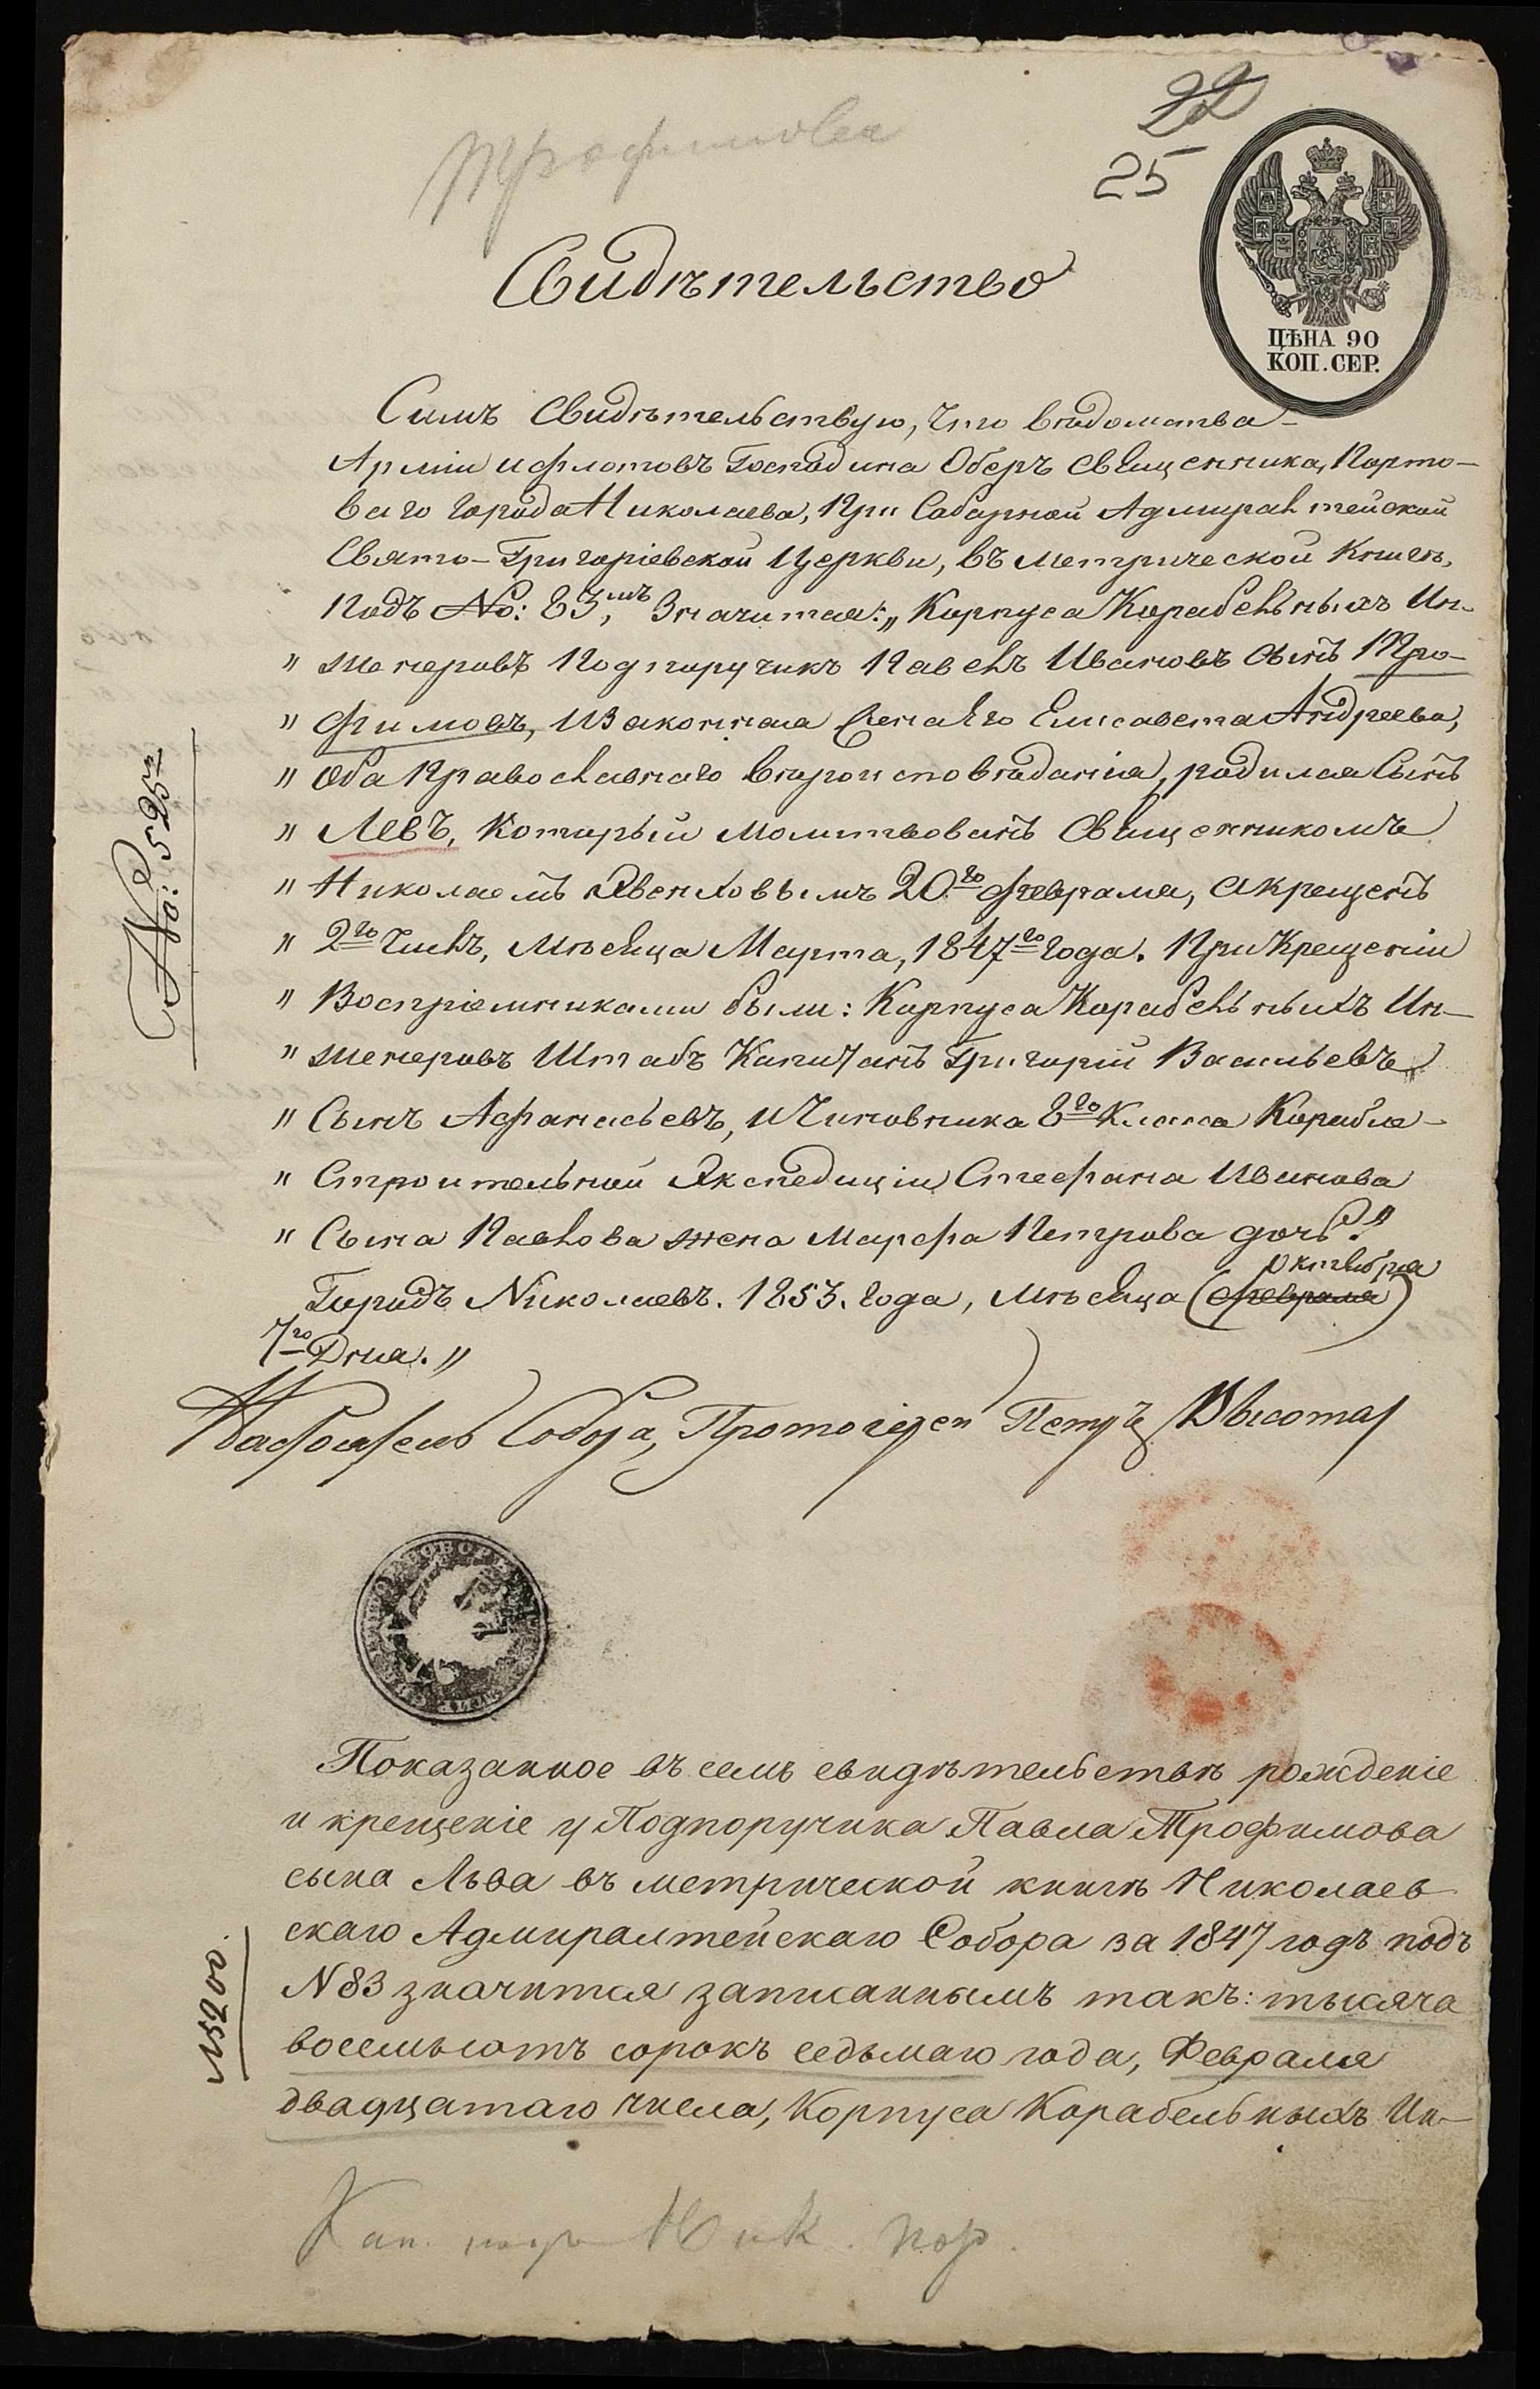 22
25
Трофимова
Свидѣтельство
ЦѢНА 90
КОП. СЕР.
Симъ Свидѣтельствую, что вѣдомства
Арміи и флотовъ Господина Оберъ Священника, Порто-
ваго города Николаева, При Соборной Адмиралтейской
Свято-Григоріевской Церкви, въ метрической Книгѣ,
Подъ No: 83,мъ Значится: „ Корпуса Корабельныхъ Ин-
„ женеровъ Подпоручикъ Павелъ Ивановъ сынъ Тро-
„ фимовъ, и Законная Жена Его Елисавета Андреева,
„ Оба Православнаго вѣроисповѣданія, родился Сынъ
„ Левъ, Который Молитвованъ Священникомъ
„ Николаемъ 20го февраля, а крещенъ
„ 2го Числъ, Мѣсяца Марта, 1847го года. При Крещеніи
„ Воспріемниками были: Корпуса Корабельныхъ Ин-
„ женеровъ Штабъ Капитанъ Григорій Васильевъ
„ Сынъ Афанасьевъ, и Чиновника 8го Класса Корабле-
„ Строительной Экспедиціи Стефана Иванова
„ Сына Павлова жена Марфа Петрова дочь. „
Октября
Городъ Николаевъ. 1853. года, Мѣсяца (февраля)
7го Дня. „
Настоятель Собора, Протоіерей Петръ Высота
No: 525й
Показанное въ семъ свидѣтельствѣ рожденіе
и крещеніе у Подпоручика Павла Трофимова
сына Льва въ метрической книгѣ Николаев
скаго Адмиралтейскаго Собора за 1847 годъ подъ
N 83 значится записаннымъ такъ: тысяча
восемьсотъ сорокъ седьмаго года, Февраля
двадцатаго числа, Корпуса Корабельныхъ Ин-
15200.